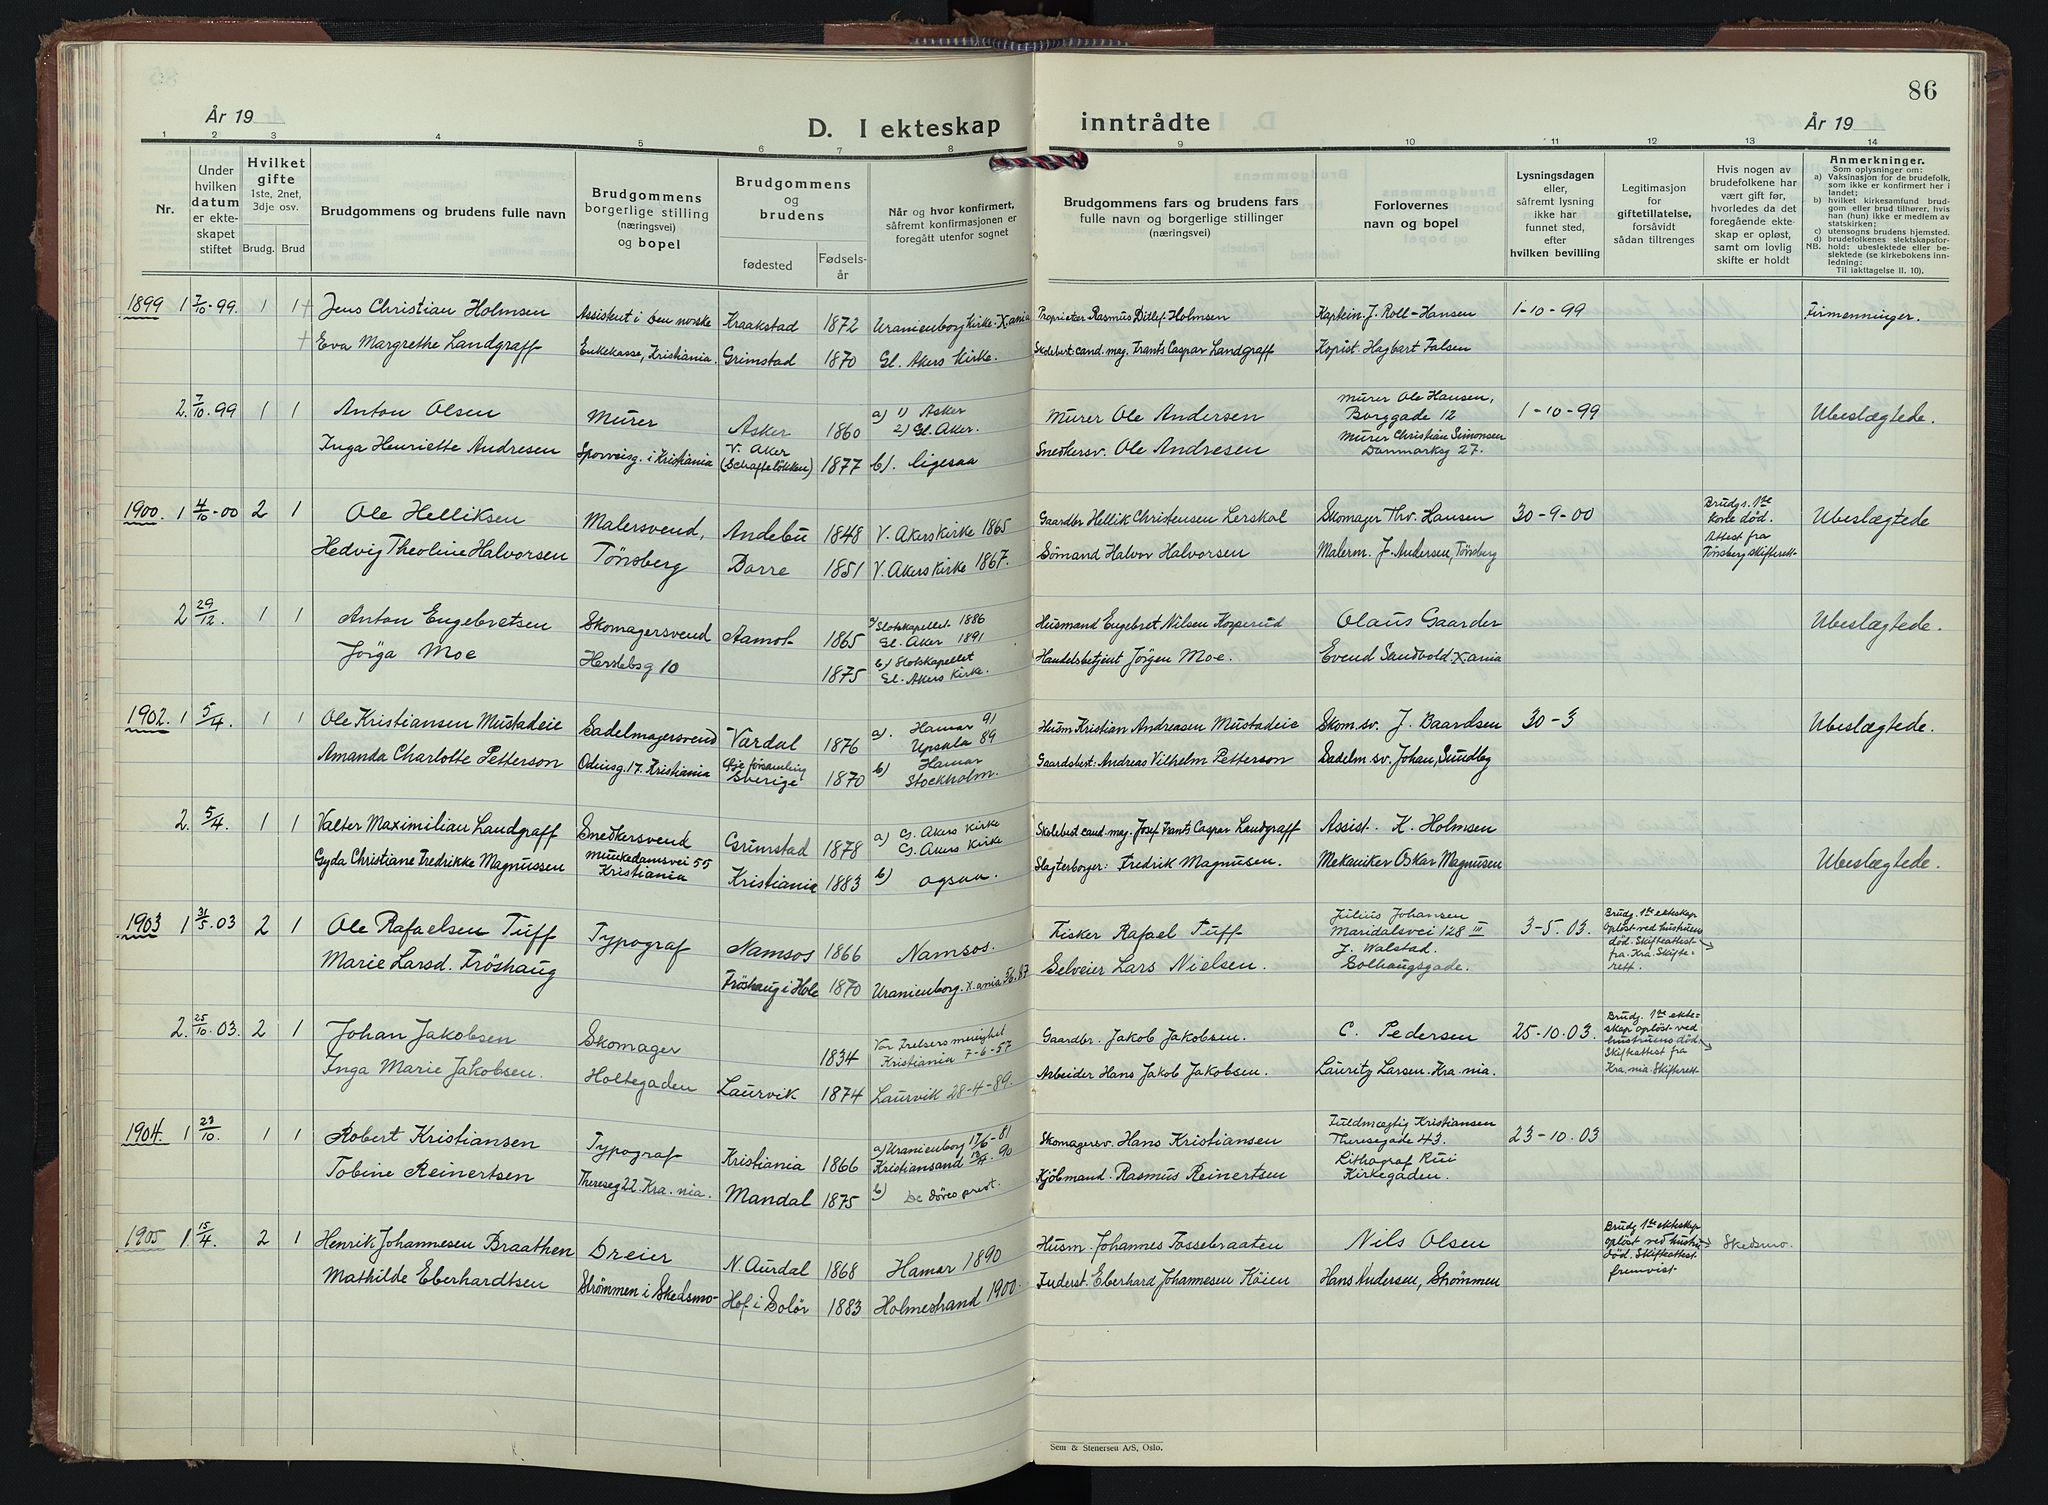 86
År 19
D. I ekteskap
inntrådte
År 19
1 2 3 4 5 6 7 8 9 10 11 12 13 14
Nr.
Under
hvilken
datum
er ekte-
skapet
stiftet
Hvilket
gifte
1ste, 2net,
3dje osv.
Brudg. Brud
Brudgommens og brudens fulle navn
Brudgommens
borgerlige stilling
(næringsvei)
og bopel
Brudgommens
og
brudens
fødested
Fødsels-
år
Når og hvor konfirmert,
såfremt konfirmasjonen er
foregått utenfor sognet
Brudgommens fars og brudens fars
fulle navn og borgerlige stillinger
(næringsvei)
Forlovernes
navn og bopel
Lysningsdagen
eller,
såfremt lysning
ikke har
funnet sted,
efter
hvilken bevilling
Legitimasjon
for
giftetillatelse,
forsåvidt
sådan tiltrenges
Hvis nogen av
brudefolkene har
vært gift før,
hvorledes da det
foregående ekte-
skap er opløst,
samt om lovlig
skifte er holdt
Anmerkninger.
Som oplysninger om:
a) Vaksinasjon for de brudefolk,
som ikke er konfirmert her i
landet;
b) hvilket kirkesamfund brud-
gom eller brud tilhører, hvis
han (hun) ikke er medlem av
statskirken;
c) utensogns brudens hjemsted.
d) brudefolkenes slektskapsfor-
NB. hold: ubeslektede eller be-
slektede (se kirkebokens inn-
ledning:
Til iakttagelse II. 10).
1899 1 7/10-99. 1 1 + Jens Christian Holmsen Assistent i Den norske Kraakstad 1872 Uranienborg Kirke. X.ania Proprietær Rasmus Ditlef Holmsen Kaptein. J. Roll-Hansen 1-10-99 Firmenninger.
+ Eva Margrethe Landgraff Enkekasse, Kristiania. Grimstad 1870 Gl. Akers Kirke. Skolebest. cand. mag. Frants Caspar Landgraff Kopist. Hagbart Falsen
2. 7/10 99 1 1 Anton Olsen Murer Asker 1860 a) 1) Asker
2) Gl. Aker. Murer Ole Andersen Murer Ole Hansen,
Borggade 12 1-10-99 Ubeslægtede.
Inga Henriette Andresen Sporveisg. i Kristiania V. Aker
(Schafteløkken) 1877 b). ligesaa Snedkersv. Ole Andresen Murer Christian Simonsen
Danmarksg 27.
1900. 1 4/10-00 2 1 Ole Helliksen Malersvend, Andebu 1848 V. Akers Kirke 1865 Gaardbr Hellik Christensen Lerskal Skomager Thv. Hansen 30-9-00 Brudgs. 1ste
kone død.
Attest fra
Tønsberg skifterett Ubeslægtede
Hedvig Theoline Halvorsen Tønsberg Borre 1851 V. Akers Kirke 1867. Sømand Halvor Halvorsen Malerm. J. Andersen, Tønsberg
2 29/12. 1 1 Anton Engebretsen Skomagersvend Aamot 1865 a) Slotskapellet 1886
Gl. Aker 1891 Husmand Engebret Nilsen Kopperud Olaus Gaarder Ubeslægtede.
Jørga Moe Herslebsg 10 1875 b) Slotskapellet
Gl. Akers Kirke. Handelsbetjent Jørgen Moe. Evend Sandvold. X.ania
1902. 1 5/4. 1 1 Ole Kristiansen Mustadeie Sadelmagersvend Vardal 1876 a). Hamar 91
Upsala 89 Husm Kristian Andreasen Mustadeie Skom. sv. J. Baardsen 30-3 Ubeslægtede.
Amanda Charlotte Petterson Odinsg. 17. Kristiania forsamling
Sverige 1870 b) Hamar
Stockholm. Gaardsbest: Andreas Vilhelm Petterson Sadelm. sv. Johan, Sundby
2. 5/4. 1 1 Valter Maximilian Landgraff Snedkersvend Grimstad 1878 a) G. Akers Kirke
G. Akers Kirke Skolebest cand. mag. Josef Frants Caspar Landgraff Assist. K. Holmsen
Gyda Christiane Fredrikke Magnussen Munkedamsvei 55
Kristiania Kristiania 1883 b) ogsaa. Slagterborger: Fredrik Magnusen. Mekaniker Oskar Magnusen Ubeslægtede.
1903 1 31/5 03 2 1 Ole Rafaelsen Tuff Typograf Namsos 1866 Namsos. Fisker Rafael Tuff Julius Johansen
Maridalsvei 128 III 3-5. 03. Brudg. 1ste ekteskap
opløst ved hustruens
død. Skifteattest
fra. Kra. Skifte-
rett.
Marie Larsd. Frøshaug Frøshaug i Hole 1870 Uranienborg. X.ania 5/6. 87 Selveier Lars Nielsen. J. Walstad.
Solhaugsgade.
2. 25/10. 03. 2 1 Johan Jakobsen Skomager 1834 Vor Frelsers menighet
Kristiania 7-6-57 Gaardbr. Jakob Jakobsen. C. Pedersen 25-10.03. Brudg. 1ste ekte-
skap opløst ved
hustruens død.
Skifteattest fra
Kra.nia. Skifterett
Inga Marie Jakobsen. Holtegaden Laurvik 1874 Laurvik 28-4-89. Arbeider Hans Jakob Jakobsen. Lauritz Larsen. Kra.nia.
1904. 1 23/10. 1 1 Robert Kristiansen Typograf Kristiania 1866 a) Uranienborg 17/6-81
Kristiansand 13/4. 90 Skomagersv. Hans Kristiansen Fuldmægtig Kristiansen
Theresegade 43. 23-10. 03
Tobine Reinertsen Thereseg 22. Kra. nia. Mandal 1875 b) De døves prest. Kjøbmand. Rasmus Reinertsen Lithograf Rui
Kirkegaden.
1905 1. 15/4. 2 1 Henrik Johannesen Braathen Dreier N. Aurdal 1868 Hamar 1890 Husm. Johannes Fossebraaten Nils Olsen Brudg 1ste ekteskap
opløst ved hustr.
død. Skifteattest
fremvist Skedsmo.
Mathilde Eberhardtsen Strømmen i Skedsmo Hof i Solør 1883 Holmestrand 1900. Inderst. Eberhard Johannesen Køien Hans Andersen, Strømmen
Sem & Stenersen A/S, Oslo.